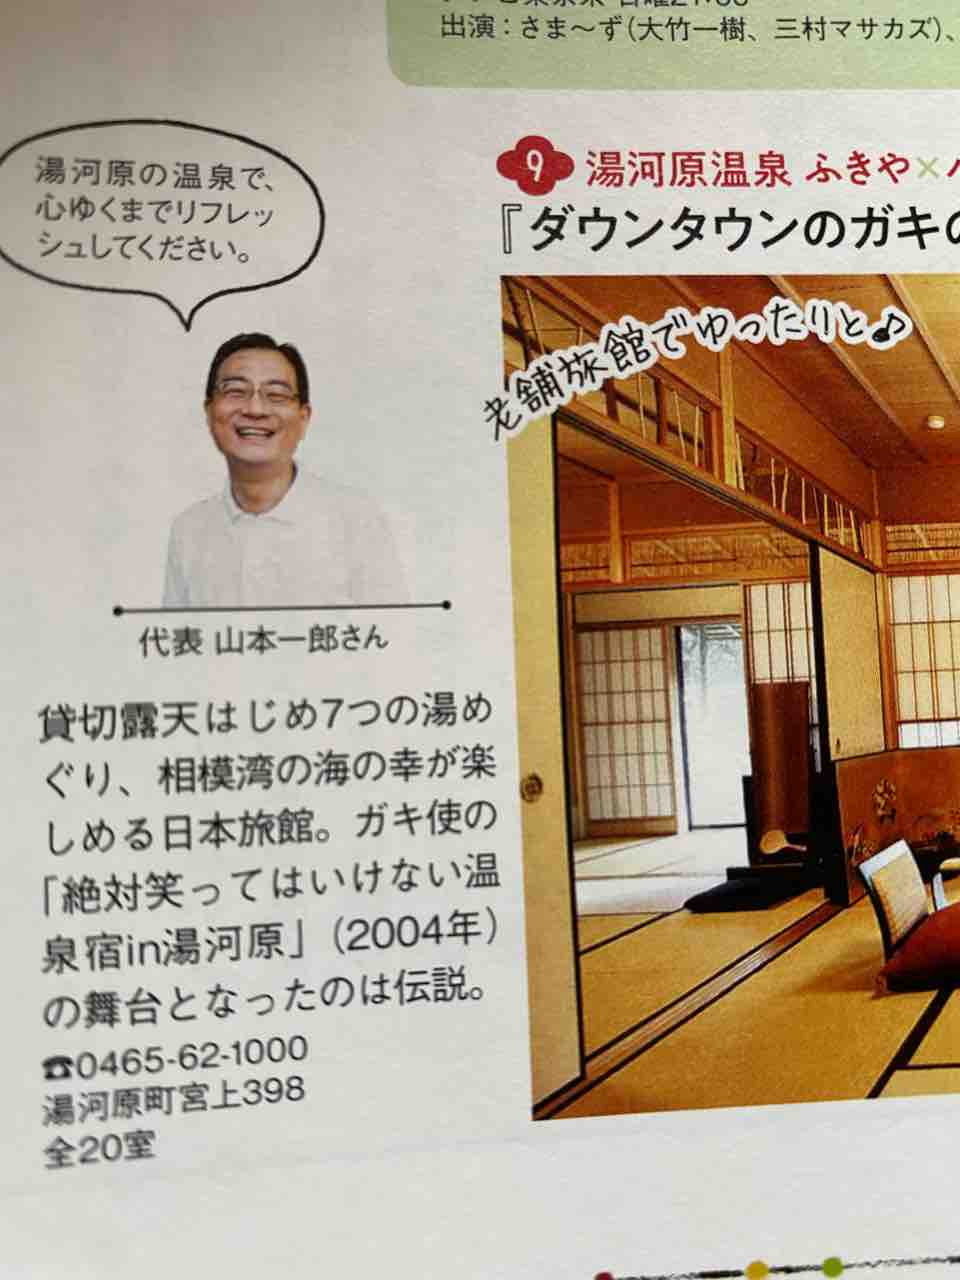 出演：さま〜ず（大竹一樹、三村マサカズ）、
湯河原の温泉で、
心ゆくまでリフレッ
シュしてください。
9 湯河原温泉 ふきや×
『ダウンタウンのガキの
老舗旅館でゆったりと♪
代表 山本一郎さん
貸切露天はじめ7つの湯め
ぐり、相模湾の海の幸が楽
しめる日本旅館。ガキ使の
「絶対笑ってはいけない温
泉宿in湯河原」（2004年）
の舞台となったのは伝説。
☎0465-62-1000
湯河原町宮上398
全20室